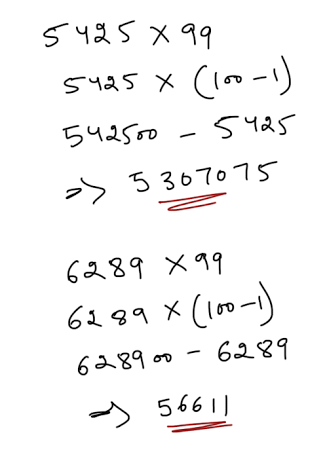 5425 × 99
5425 × (100-1)
542500 - 5425
=> 5307075
6289 × 99
6289 × (100-1)
628900 - 6289
=> 56611